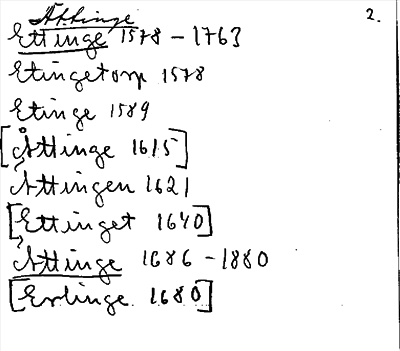 Ättinge 2.
Ettinge 1578 - 1763
Etingetorp 1578
Etinge 1589
[Åttinge 1615]
Ättingen 1621
[Ettinget 1640]
Ättinge 1686 - 1880
[Erlinge 1680]